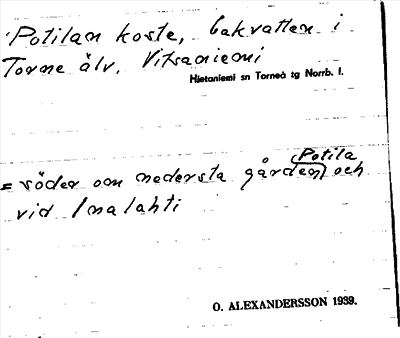 Potilan koste, bakvatten i
Torne älv. Vitsaniemi
Hietaniemi sn Torneå tg Norrb. l.
Potila
= söder om nedersta gården och
vid Inalahti
O. ALEXANDERSSON 1939.